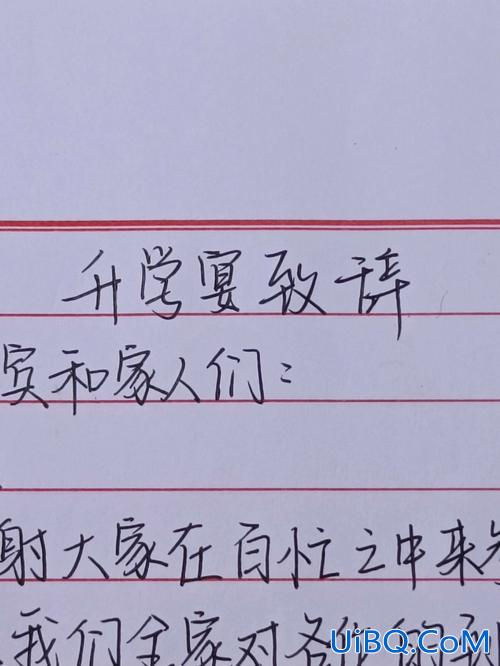 升学宴致辞
宾和家人们：
谢大家在百忙之中来
我们全家对各位的
UiBQ.CoM